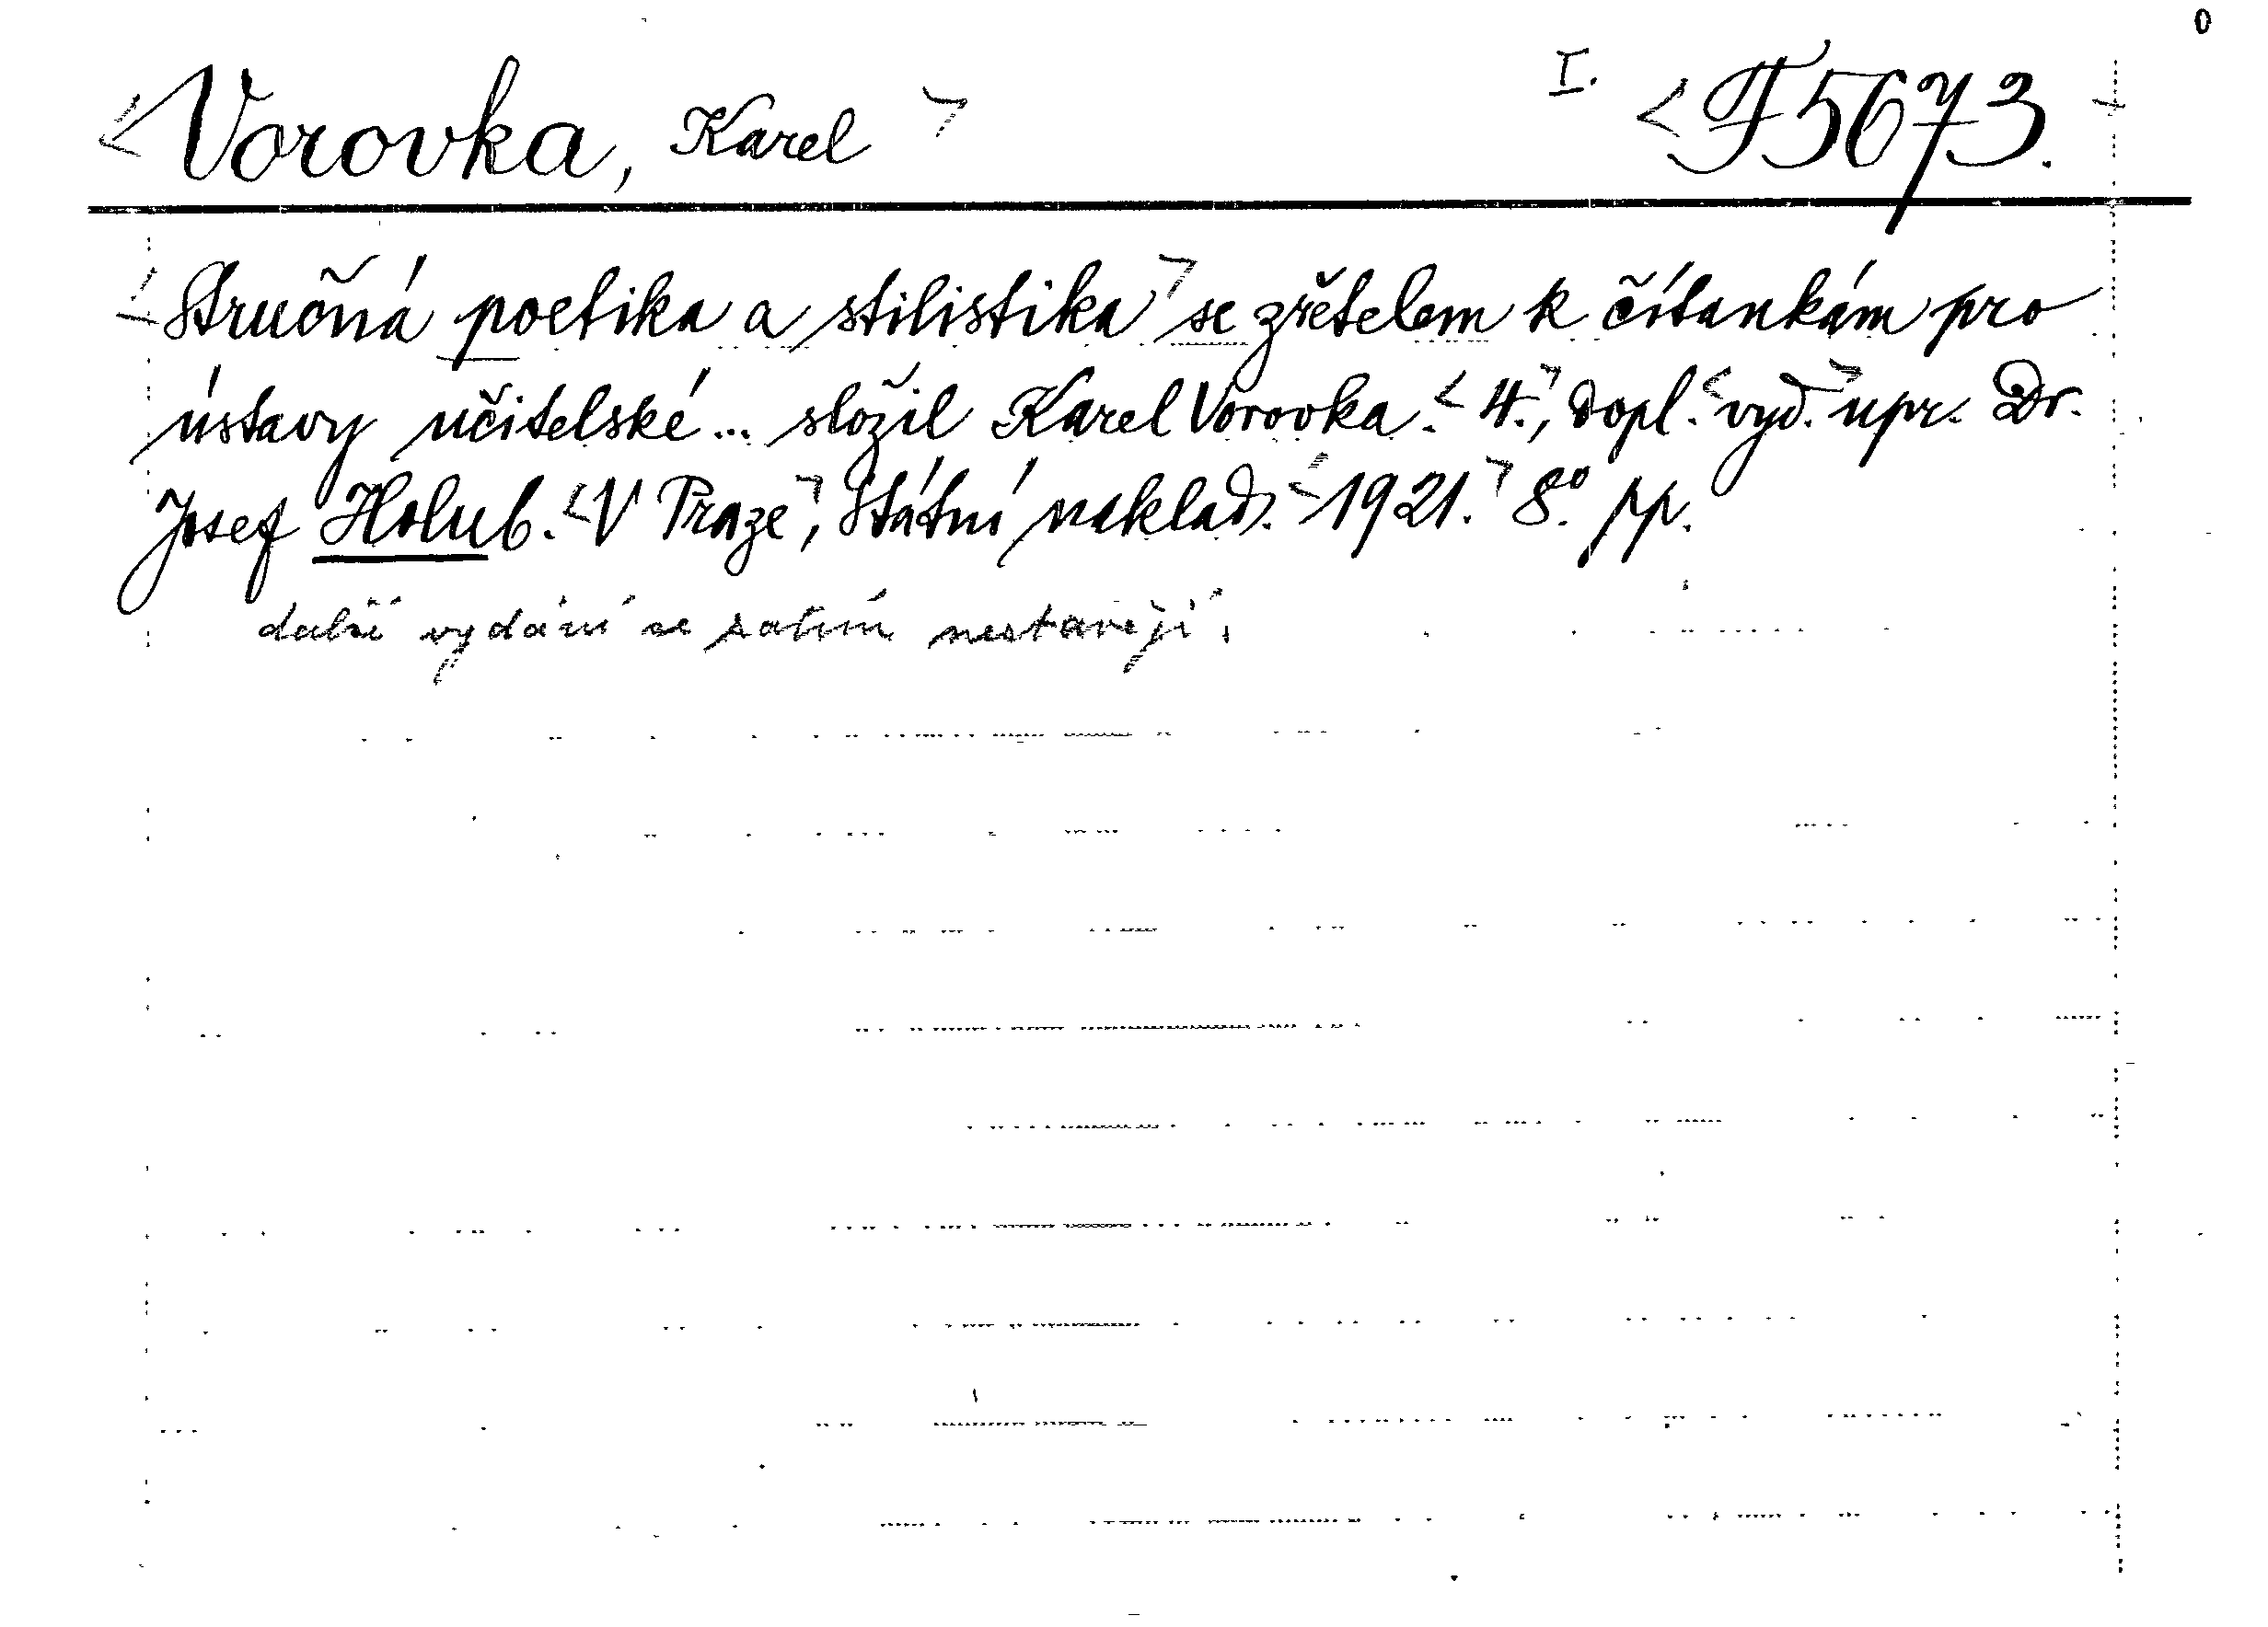 0
<Vorovka, Karel> I. <F 5673.>
<Stručná poetika a stilistika> se zřetelem k čítankám pro
ústavy učitelské... složil Karel Vorovka. <4.>, dopl. <vyd.> upr. Dr.
Josef Holub. <V Praze>, Státní naklad. <1921.> 8° pp.
další vydání se zatím nestavějí.